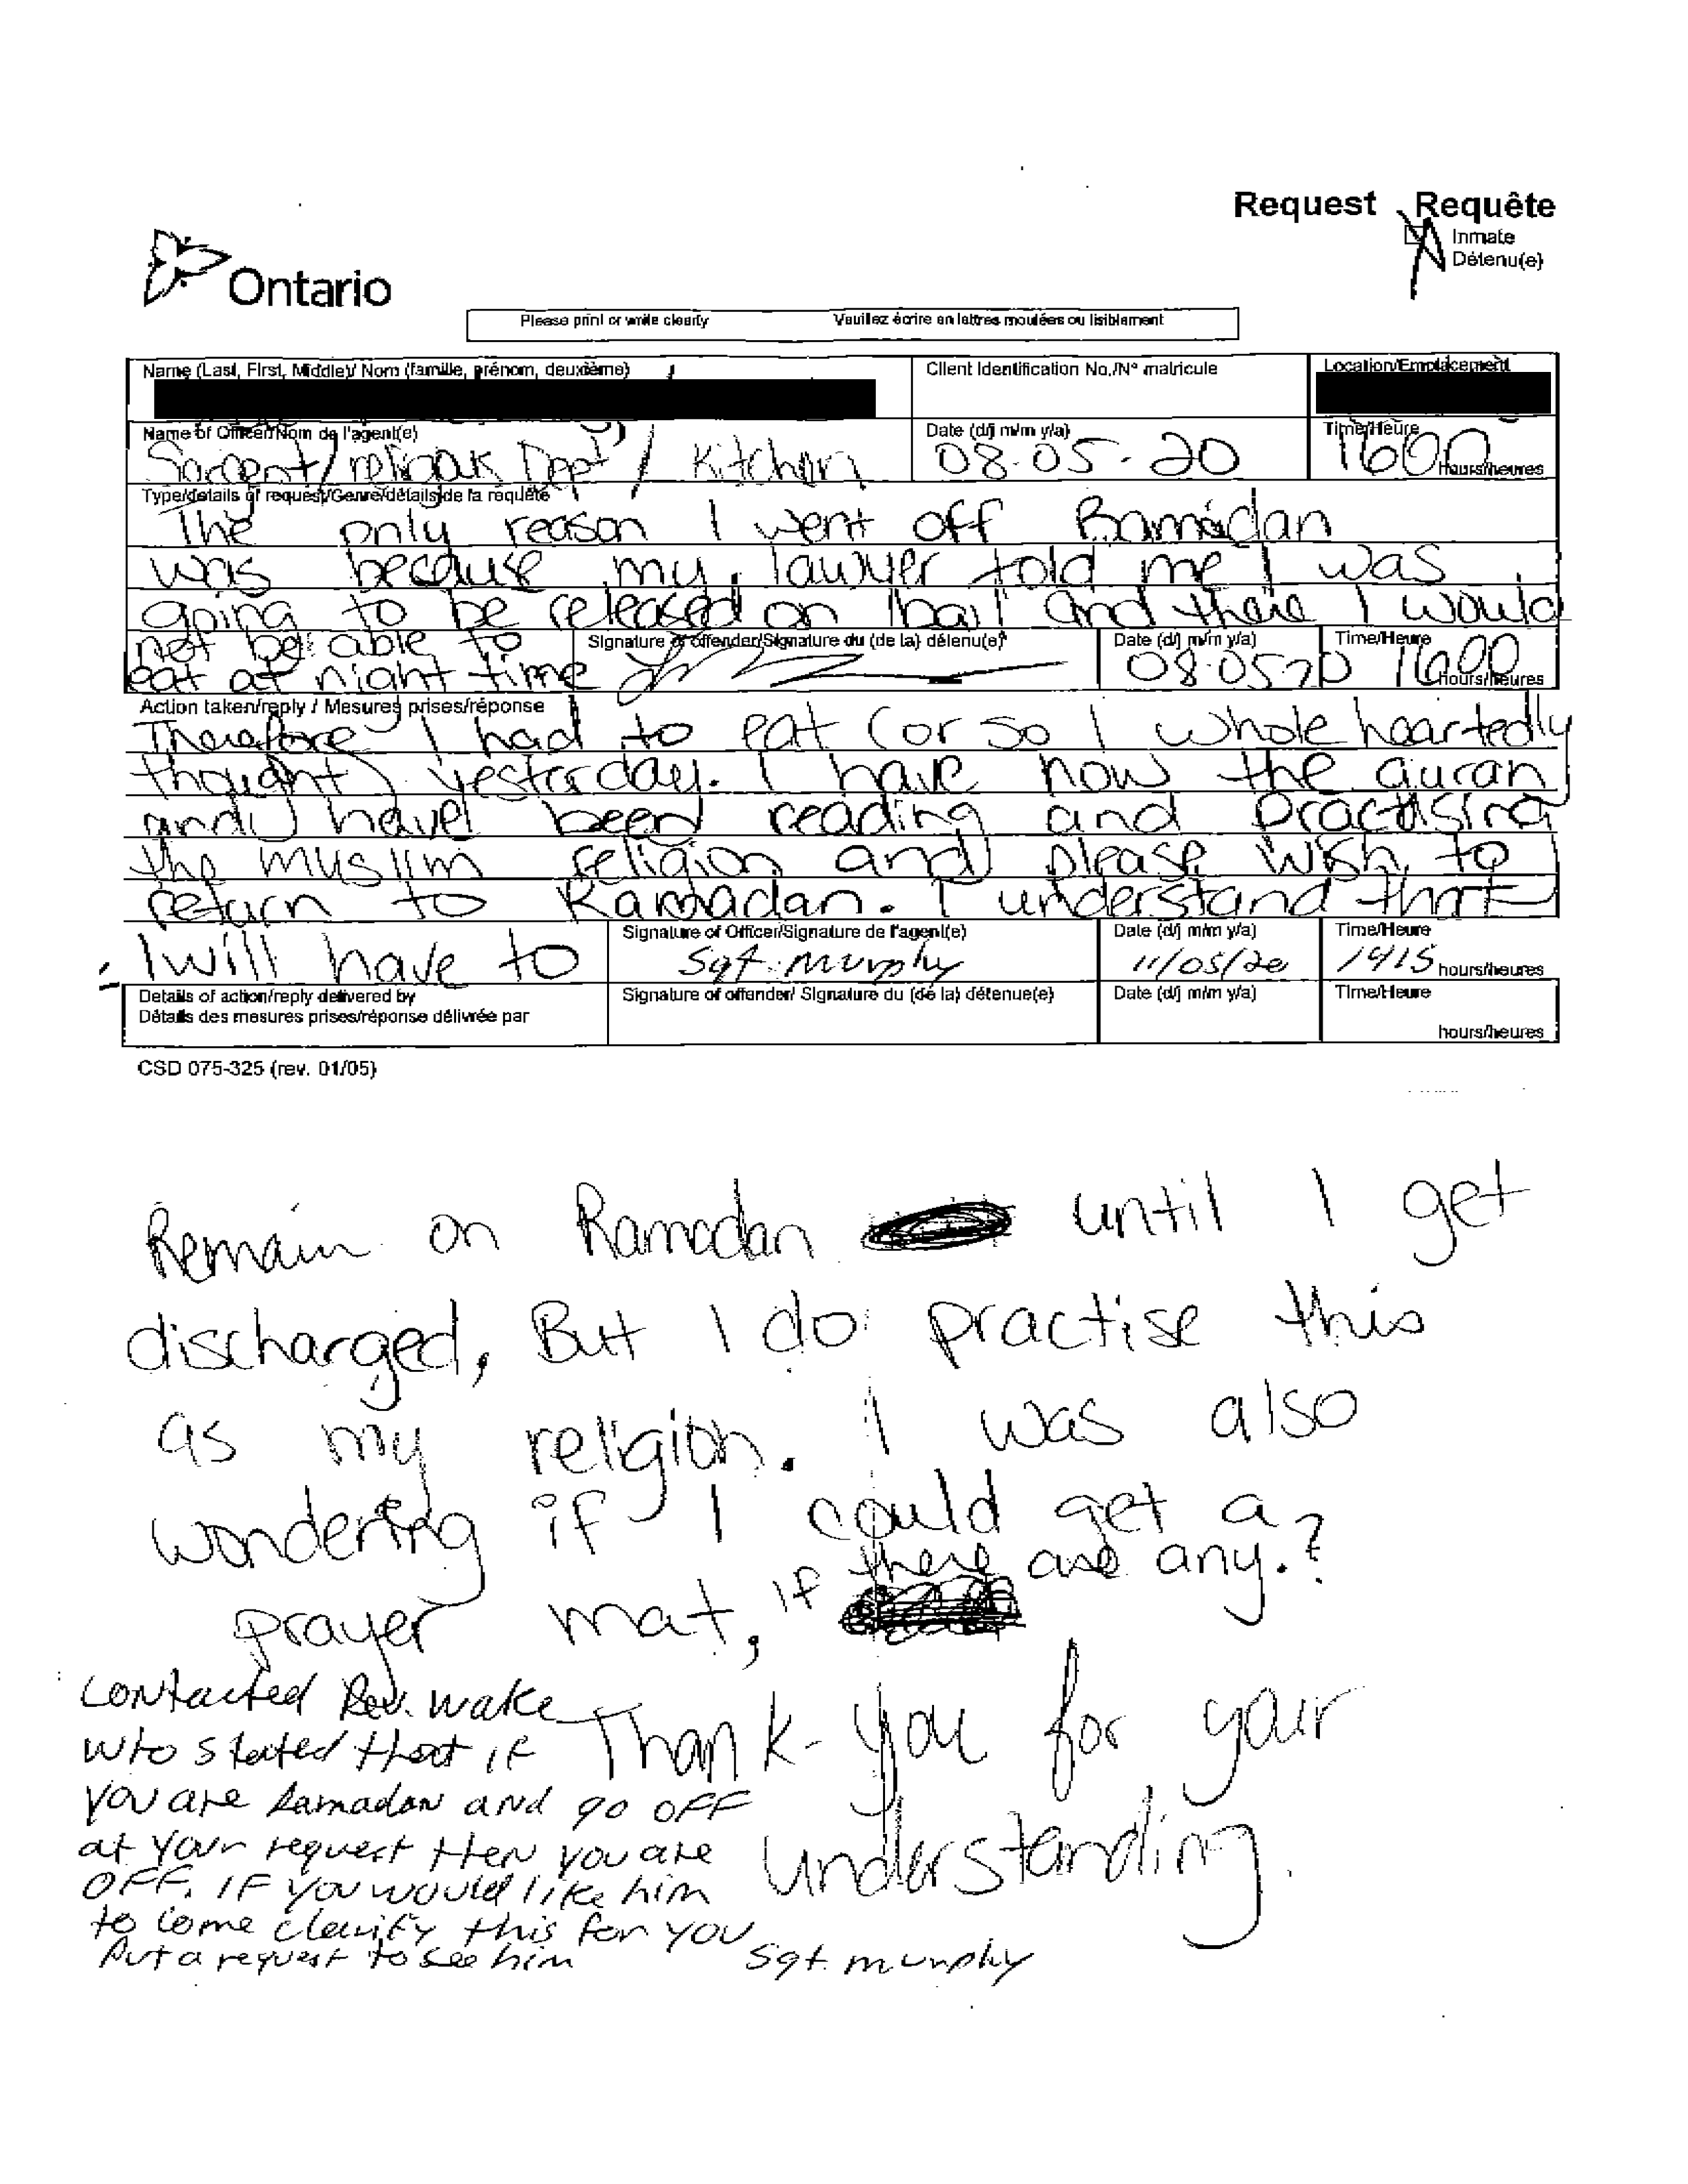 Request Requête
Inmate
Détenu(e)
Ontario
Please print or write clearly Veuillez écrire en lettres moulées ou lisiblement
Name (Last, First, Middle)/ Nom (famille, prénom, deuxième) Client Identification No./N° matricule Location/Emplacement
Name of Officer/Nom de l'agent(e) Date (d/j m/m y/a) Time/Heure
Sargent/ religous Dept / Kitchen 08.05.20 1600 Hours/heures
Type/details of request/Genre/détails de la requête
The only reason I went off Ramadan
was because my lawyer told me I was
going to be released on bail and there I would
not be able to Signature of offender/Signature du (de la) détenu(e) Date (d/j m/m y/a) Time/Heure
eat at night time 08.05.20 1600 Hours/heures
Action taken/reply / Mesures prises/réponse
Therefore I had to eat (or so I whole heartedly
thought) yesterday. I have now the quran
and have been reading and practising
the muslim religion and please wish to
return to Ramadan. I understand that
I will have to Signature of Officer/Signature de l'agent(e) Date (d/j m/m y/a) Time/Heure
Sgt. Murphy 11/05/20 1415 hours/heures
Details of action/reply delivered by Signature of offender/ Signature du (de la) détenue(e) Date (d/j m/m y/a) Time/Heure
Détails des mesures prises/réponse délivrée par hours/heures
CSD 075-325 (rev. 01/05)
Remain on Ramadan until I get
discharged, But I do practise this
as my religion. I was also
wondering if I could get a
prayer mat, if there are any.?
Thank-you for your
understanding.
Contacted Rev. Wake
who stated that if
you are Ramadan and go off
at your request then you are
OFF. IF you would like him
to come clarify this for you
Put a request to see him Sgt. Murphy